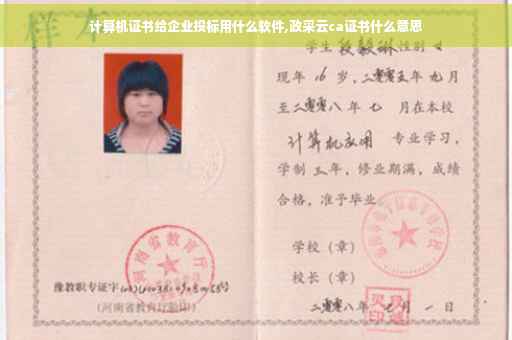 计算机证书给企业投标用什么软件,政采云ca证书什么意思
样本
学生段毅琳性别女
现年16岁,二零零五年九月
至二零零八年七 月在本校
计算机应用 专业学习,
学制三年,修业期满,成绩
合格,准予毕业
学校(章)
校长(章)
二零零八年 月一日
河南省教育厅
豫教职专证字
(河南省教育厅验印)